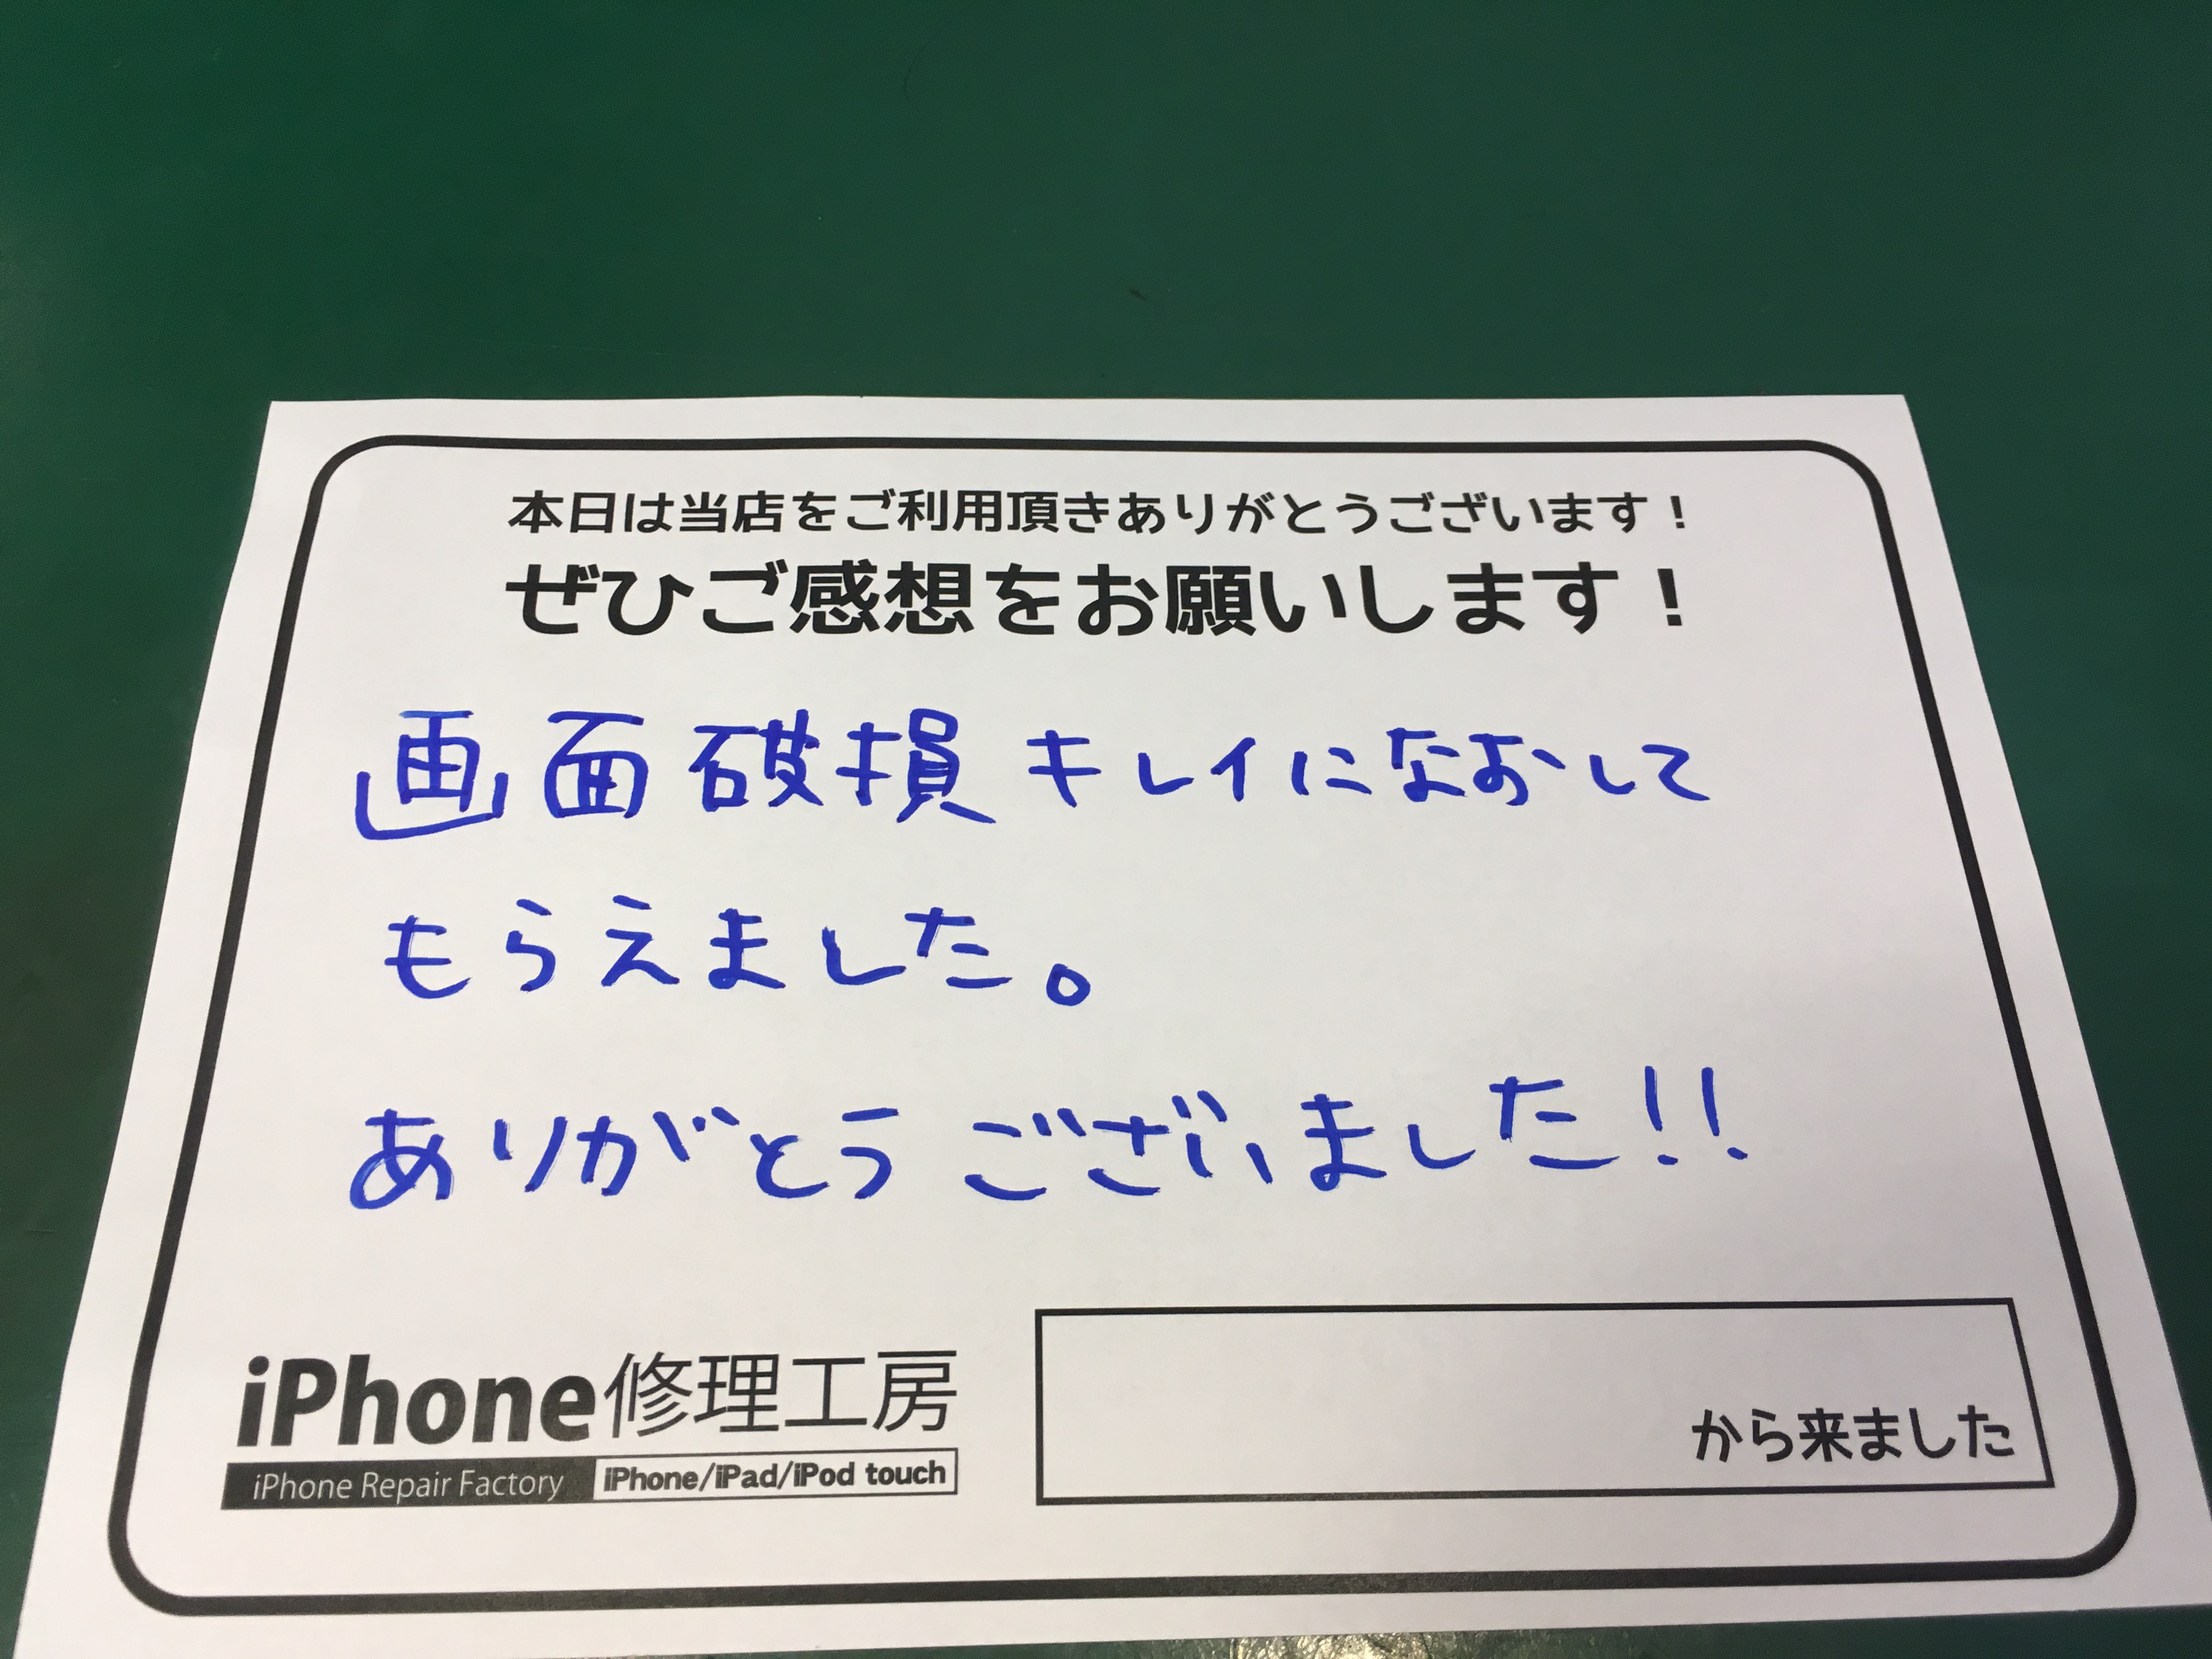 本日は当店をご利用頂きありがとうございます！
ぜひご感想をお願いします！
画面破損キレイになおして
もらえました。
ありがとうございました!!
iPhone修理工房
iPhone Repair Factory iPhone/iPad/iPod touch
から来ました